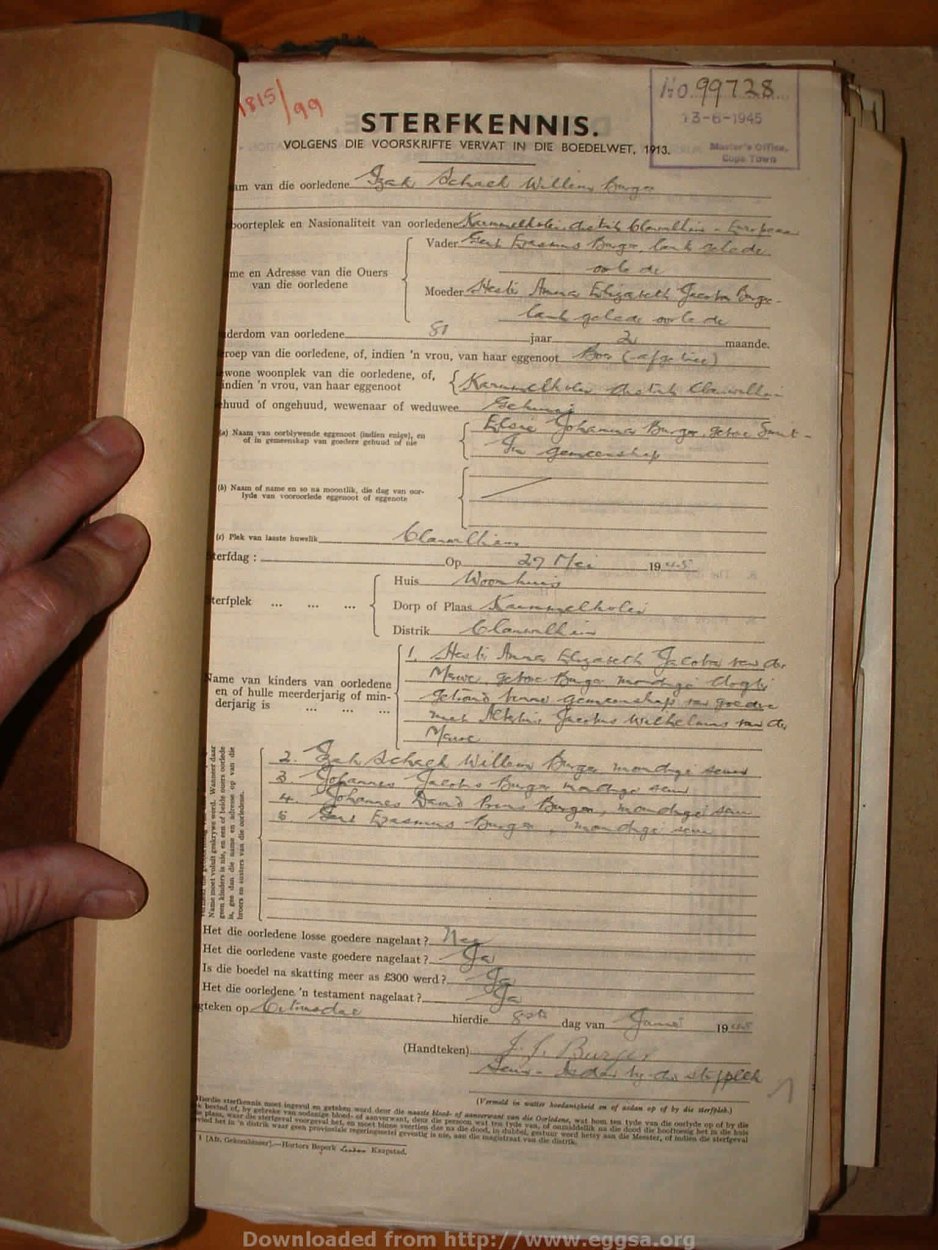 1815/99
No. 99728
13-6-1945
Master's Office,
Cape Town
STERFKENNIS.
VOLGENS DIE VOORSKRIFTE VERVAT IN DIE BOEDELWET, 1913.
am van die oorledene Izak Schach Willem Burger
boorteplek en Nasionaliteit van oorledene distrik Clanwilliam - Europeaan
Vader Gert Erasmus Burger, lank gelede
oorlede
me en Adresse van die Ouers
van die oorledene
Moeder Hester Anna Elizabeth Jacoba Burger
lank gelede oorlede
derdom van oorledene 81 jaar 2 maande.
roep van die oorledene, of, indien 'n vrou, van haar eggenoot Boer (afgetree)
ewone woonplek van die oorledene, of,
indien 'n vrou, van haar eggenoot
distrik Clanwilliam
huud of ongehuud, wewenaar of weduwee Gehuud
(a) Naam van oorblywende eggenoot (indien enige), en
of in gemeenskap van goedere gehuud of nie
Elsie Johanna Burger, gebore Smit -
In gemeenskap
(b) Naam of name en so na moontlik, die dag van oor-
lyde van vooroorlede eggenoot of eggenote
(c) Plek van laaste huwelik Clanwilliam
terfdag : Op 27 Mei 1945
Huis Woonhuis
terfplek ... ... ...
Dorp of Plaas
Distrik Clanwilliam
Name van kinders van oorledene
en of hulle meerderjarig of min-
derjarig is ... ... ...
1. Hester Anna Elizabeth Jacoba van der
Merwe, gebore Burger mondige dogter
getroud binne gemeenskap van goedere
met Jacobus Wilhelmus van der
Merwe
2. Izak Schach Willem Burger mondige seun
3 Johannes Jacobus Burger mondige seun
4. Johannes David Burger, mondige seun
5. Gert Erasmus Burger, mondige seun
Name moet voluit geskrywe word. Wanneer daar
geen kinders is nie, en een of beide ouers oorlede
is, gee dan die name en adresse op van die
broers en susters van die oorledene.
Het die oorledene losse goedere nagelaat? Nee
Het die oorledene vaste goedere nagelaat? Ja
Is die boedel na skatting meer as £300 werd? Ja
Het die oorledene 'n testament nagelaat? Ja
gteken op Citrusdal hierdie 8ste dag van Junie 1945
(Handteken) J. J. Burger
Seun - by die sterfplek
(Vermeld in watter hoedanigheid en of aedan op of by die sterfplek.)
Hierdie sterfkennis moet ingevul en geteken word deur die naaste bloed- of aanverwant van die Oorledene, wat hom ten tyde van die oorlyde op of by die
1 [Afr. Gekombineer].—Hortors Beperk Kaapstad.
Downloaded from http://www.eggsa.org